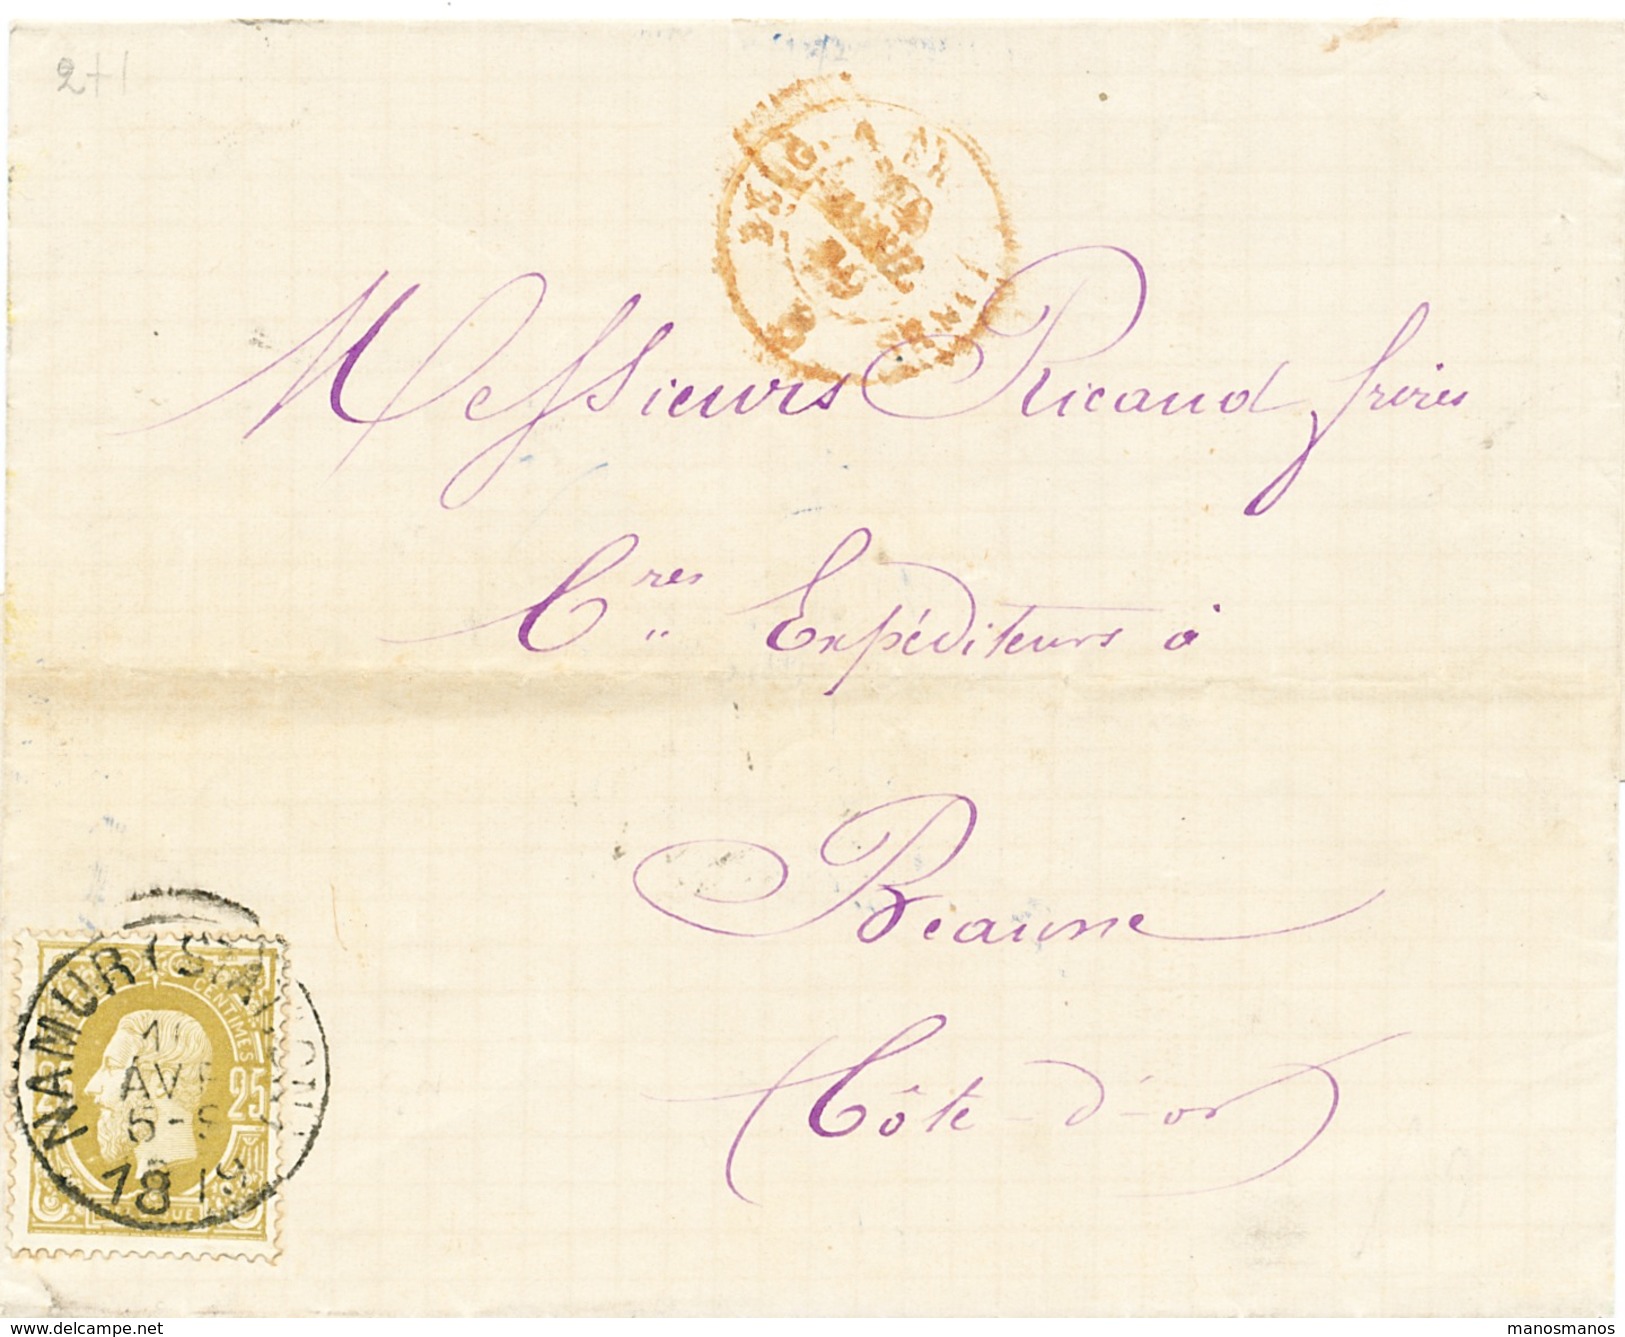 2+1
BELG. À
Messieurs Ricaud frères
Cres Expéditeurs à
Beaune
Côte-d'-or
NAMUR (STATION)
CENTIMES
25
AVR
1879
www.delcampe.net
manosmanos